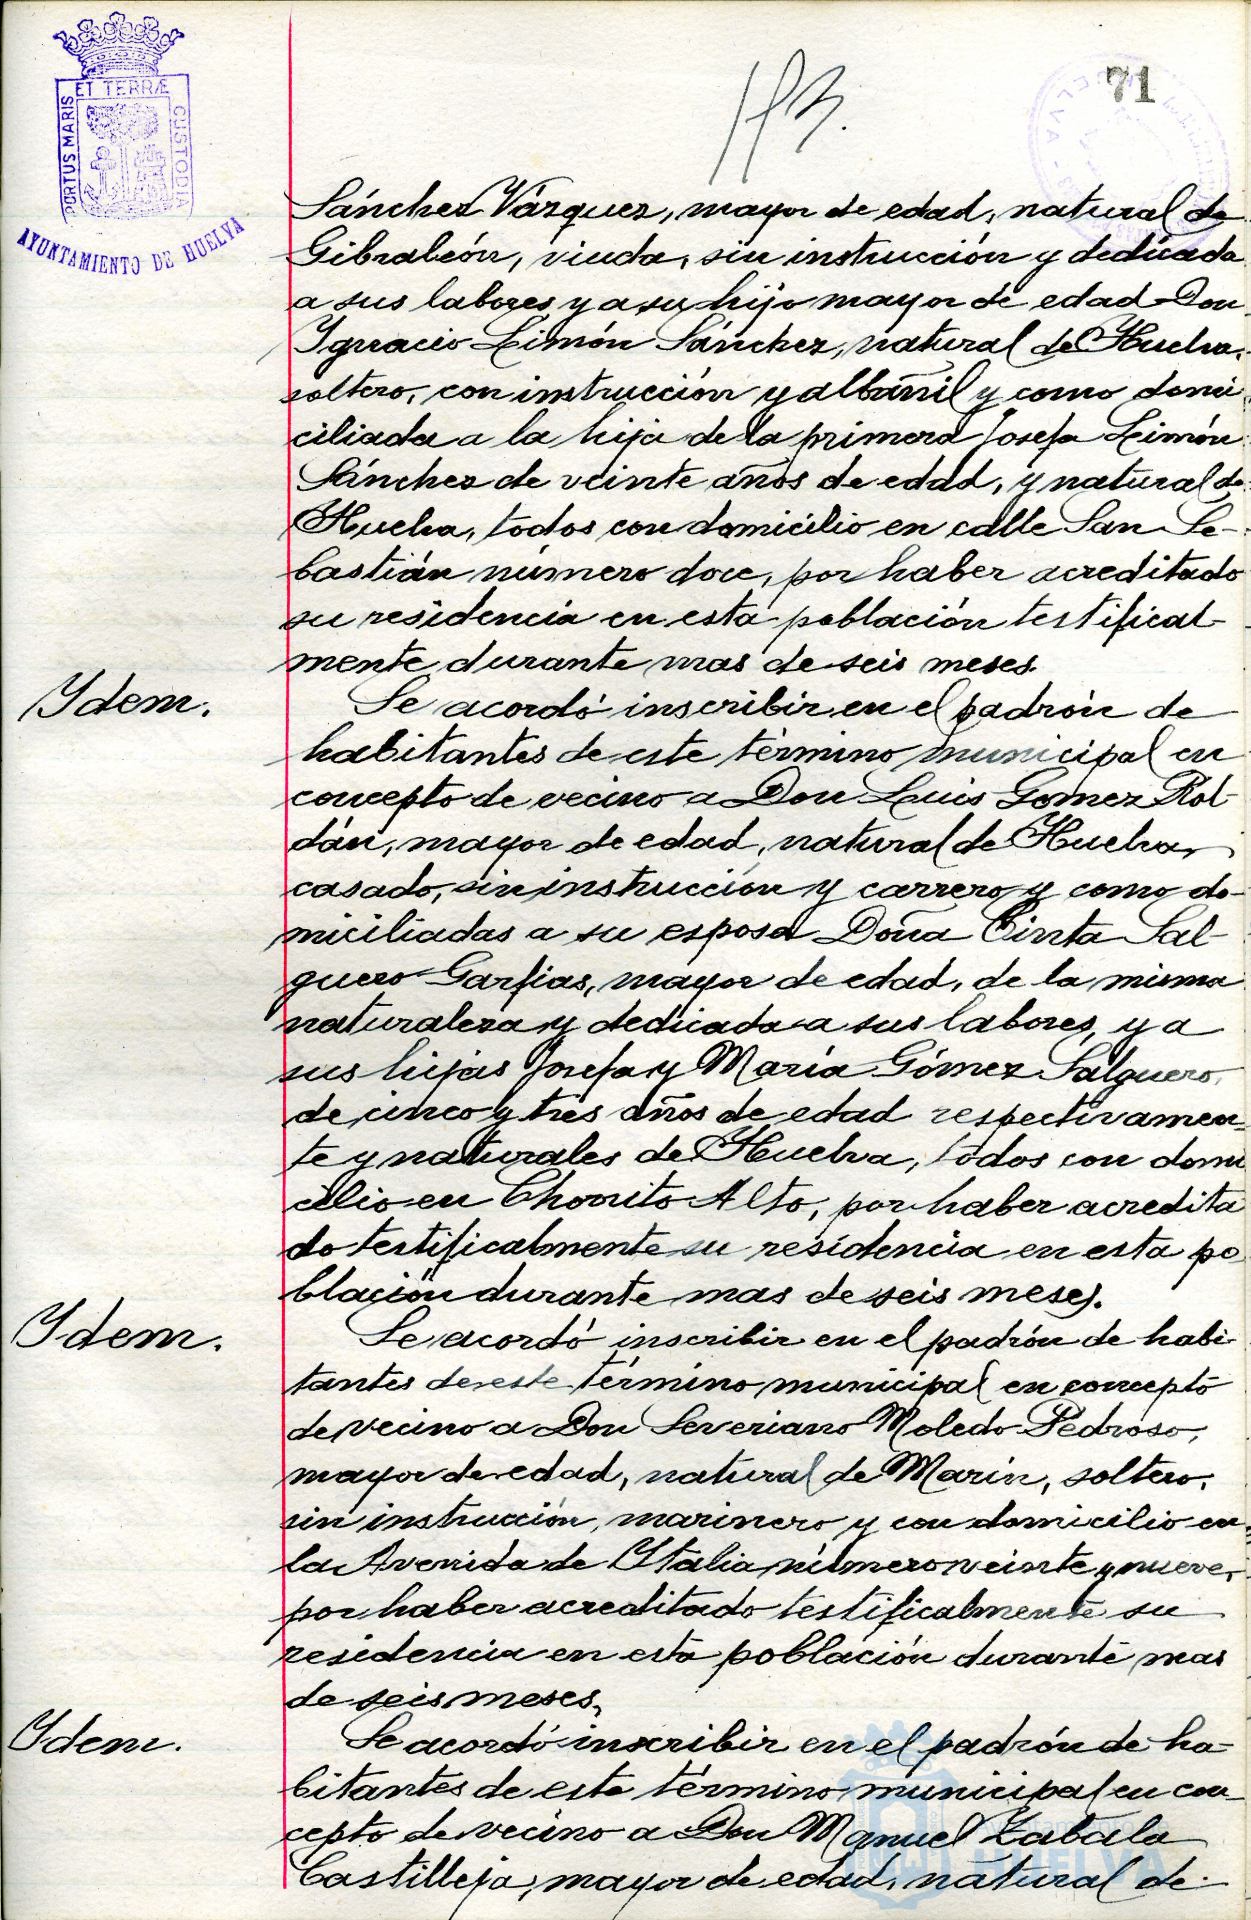 71
PORTUS MARIS ET TERRÆ CUSTODIA
AYUNTAMIENTO DE HUELVA
Sánchez Vázquez, mayor de edad, natural de
Gibraleón, viuda, sin instrucción y dedicada
a sus labores y a su hijo mayor de edad Don
Ygnacio Limón Sánchez, natural de Huelva,
soltero, con instrucción y albañil y como domi
ciliada a la hija de la primera Josefa Limón
Sánchez de veinte años de edad, y natural de
Huelva, todos con domicilio en calle San Se-
bastián número doce, por haber acreditado
su residencia en esta población testifical-
mente durante mas de seis meses.
Ydem.
Se acordó inscribir en el padrón de
habitantes de este término municipal en
concepto de vecino a Don Luis Gomez Rol-
dán, mayor de edad, natural de Huelva,
casado, sin instrucción y carrero y como do-
miciliadas a su esposa Doña Cinta Sal-
guero Garfias, mayor de edad, de la misma
naturaleza y dedicada a sus labores, y a
sus hijas Josefa y María Gómez Salguero,
de cinco y tres años de edad respectivamen-
te y naturales de Huelva, todos con domi
cilio en Chorrito Alto, por haber acredita
do testificalmente su residencia en esta po
blación durante mas de seis meses.
Ydem.
Se acordó inscribir en el padrón de habi-
tantes de este término municipal en concepto
de vecino a Don Severiano Moledo Pedroso,
mayor de edad, natural de Marin, soltero,
sin instrucción, marinero y con domicilio en
la Avenida de Ytalia número veinte y nueve,
por haber acreditado testificalmente su
residencia en esta población durante mas
de seis meses.
Ydem.
Se acordó inscribir en el padrón de ha-
bitantes de este término municipal en con-
cepto de vecino a Don Manuel Zabala
Castilleja, mayor de edad, natural de
HUELVA